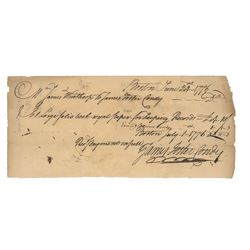 Boston June 24th 1776
Mr James Winthrop to James Foster Condy
To 1 large folio book royal paper for keeping Records
Boston July 1 1776
Recd payment in full
James Foster Condy